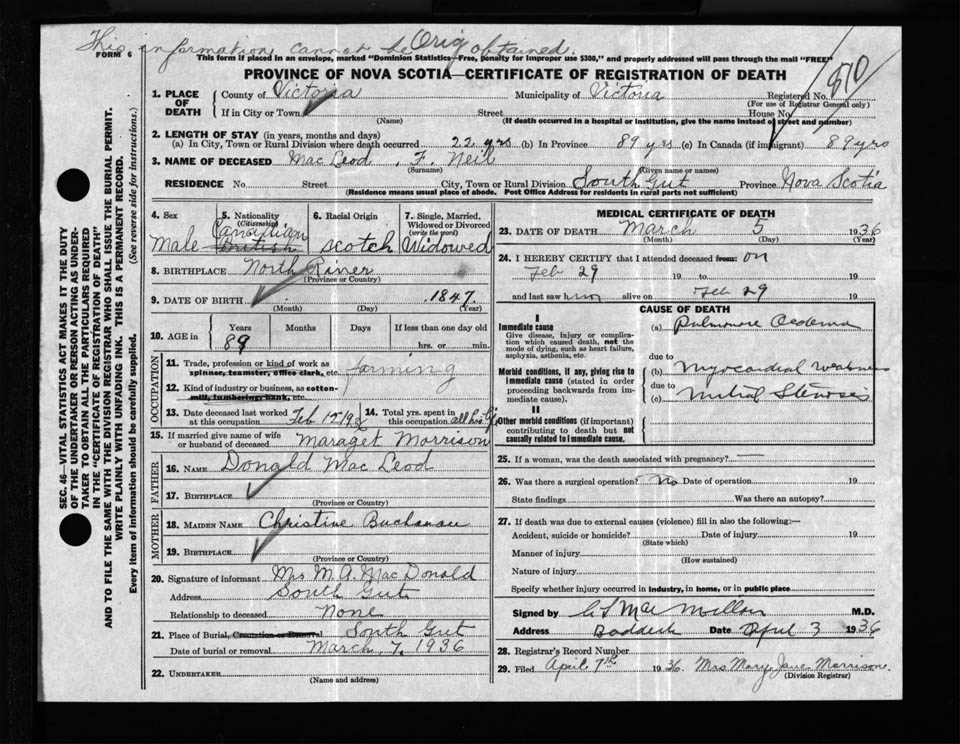 This information cannot be Orig obtained.
FORM 6
This form if placed in an envelope, marked "Dominion Statistics—Free, penalty for improper use $300," and properly addressed will pass through the mail "FREE"
PROVINCE OF NOVA SCOTIA—CERTIFICATE OF REGISTRATION OF DEATH
510
1. PLACE OF DEATH
County of Victoria Municipality of Victoria Registered No.
(For use of Registrar General only)
If in City or Town Street House No.
(Name) (If death occurred in a hospital or institution, give the name instead of street and number)
2. LENGTH OF STAY (in years, months and days)
(a) In City, Town or Rural Division where death occurred 22 yrs (b) In Province 89 yrs (c) In Canada (if immigrant) 89 yrs
3. NAME OF DECEASED MacLeod . F. Neil
(Surname) (Given name or names)
RESIDENCE No. Street City, Town or Rural Division South Gut Province Nova Scotia
(Residence means usual place of abode. Post Office Address for residents in rural parts not sufficient)
4. Sex Male
5. Nationality (Citizenship) Canadian British
6. Racial Origin Scotch
7. Single, Married, Widowed or Divorced (write the word) Widowed
8. BIRTHPLACE North River
(Province or Country)
9. DATE OF BIRTH 1847.
(Month) (Day) (Year)
10. AGE in Years Months Days If less than one day old
89 hrs. or min.
OCCUPATION
11. Trade, profession or kind of work as spinner, teamster, office clerk, etc. farming
12. Kind of industry or business, as cotton-mill, lumbering, bank, etc.
13. Date deceased last worked at this occupation Feb 12 1936
14. Total yrs. spent in this occupation all his life
15. If married give name of wife or husband of deceased Maraget Morrison
FATHER
16. NAME Donald MacLeod
17. BIRTHPLACE
(Province or Country)
MOTHER
18. MAIDEN NAME Christine Buchanan
19. BIRTHPLACE
(Province or Country)
20. Signature of informant Mrs M. A. MacDonald
Address South Gut
Relationship to deceased None
21. Place of Burial, Cremation or Removal South Gut
Date of burial or removal March, 7, 1936
22. UNDERTAKER
(Name and address)
MEDICAL CERTIFICATE OF DEATH
23. DATE OF DEATH March 5 1936
(Month) (Day) (Year)
24. I HEREBY CERTIFY that I attended deceased from: on
Feb 29 19 to 19
and last saw him alive on Feb 29 19
CAUSE OF DEATH
I
Immediate cause
Give disease, injury or complication which caused death, not the mode of dying, such as heart failure, asphyxia, asthenia, etc.
(a) Pulmonare Oedema
due to
Morbid conditions, if any, giving rise to immediate cause (stated in order proceeding backwards from immediate cause).
(b) Myocardial Weakness
due to
(c) Mitral Stenosis
II
Other morbid conditions (if important) contributing to death but not causally related to immediate cause.
25. If a woman, was the death associated with pregnancy? —
26. Was there a surgical operation? No Date of operation 19
State findings Was there an autopsy?
27. If death was due to external causes (violence) fill in also the following:—
Accident, suicide or homicide? Date of injury 19
(State which)
Manner of injury
(How sustained)
Nature of injury
Specify whether injury occurred in industry, in home, or in public place
Signed by C L MacMillan M.D.
Address Baddeck Date April 3 1936
28. Registrar's Record Number
29. Filed April 7th 1936 Mrs Mary Jane Morrison.
(Division Registrar)
SEC. 46—VITAL STATISTICS ACT MAKES IT THE DUTY
OF THE UNDERTAKER OR PERSON ACTING AS UNDERTAKER TO OBTAIN ALL THE PARTICULARS REQUIRED
IN THE "CERTIFICATE OF REGISTRATION OF DEATH"
AND TO FILE THE SAME WITH THE DIVISION REGISTRAR WHO SHALL ISSUE THE BURIAL PERMIT.
WRITE PLAINLY WITH UNFADING INK. THIS IS A PERMANENT RECORD.
Every item of information should be carefully supplied. (See reverse side for instructions.)